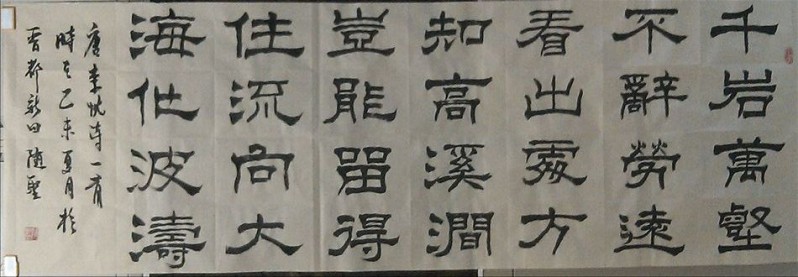 千岩萬壑
不辭勞遠
看出處方
知高溪澗
豈能留得
住流向大
海作波濤
唐李忱诗一首
時在乙未夏月於
晋都新田随聖